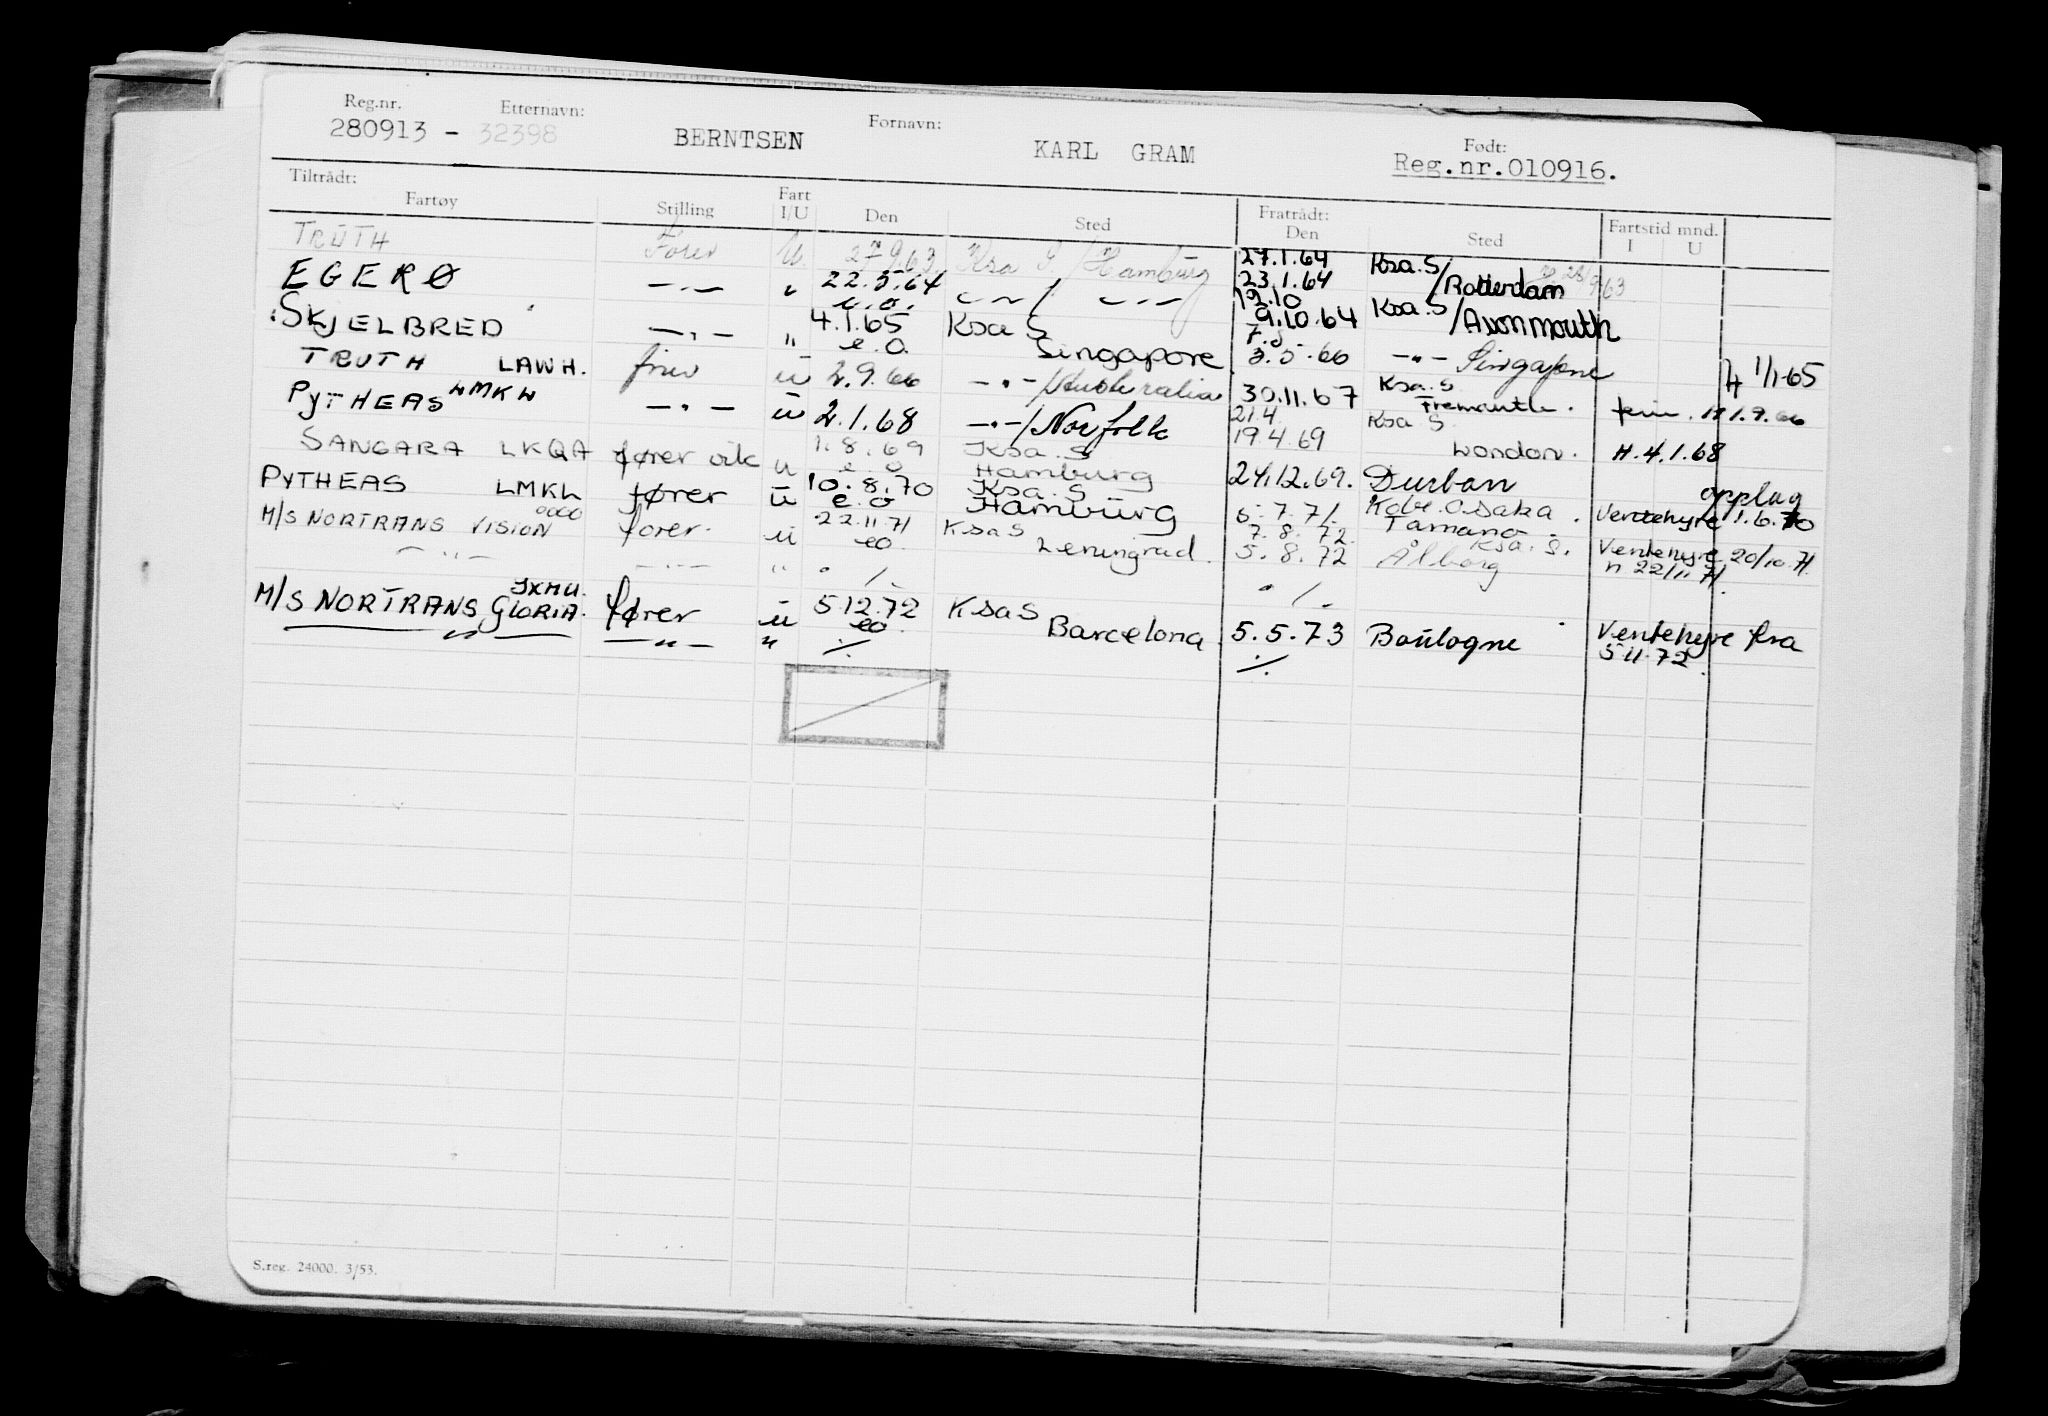 Reg.nr. Etternavn: Fornavn: Født:
280913 - 32398 BERNTSEN KARL GRAM Reg.nr.010916.
Tiltrådt: Fratrådt: Fartstid mnd.
Fartøy Stilling Fart I/U Den Sted Den Sted I U
TRUTH Fører U. 27.9.63 Ksa S/Hamburg 27.1.64 Ksa.S/Rotterdam 28/9.63
23.1.64
EGERØ —"— " 22.5.64 —"—/ —"— 12.10 Ksa.S/Avonmouth
e.o. 9.10.64
SKJELBRED —"— " 4.1.65 Ksa S Singapore 7.5. —"— Singapore 1/1-65
e.o. 3.5.66
TRUTH LAWH. fører u 2.9.66 —"—/Australia 30.11.67 Ksa.S Fremantle. 1.9.66
PYTHEAS LMKL —"— u 2.1.68 —"—/Norfolk 21.4 Ksa S London. H.4.1.68
19.4.69
SANGARA LKQA fører vik u 1.8.69 Ksa.S Hamburg 24.12.69. Durban opplag
e.o
PYTHEAS LMKL fører u 10.8.70 Ksa.S Hamburg 5.7.71. Kobe.Osaka. Ventehyre 1.6.70
e.o
M/S NORTRANS VISION fører. u 22.11.71 KsaS Leningrad. 7.8.72 Tamano. Ventehyre 20/10.71.
eo. 5.8.72 Ksa.S. Ålborg 22/11 71.
—"— —"— " ./. ./.
M/S NORTRANS GLORIA. JXMU. fører u 5.12.72 KsaS Barcelona 5.5.73 Boulogne Ventehyre fra
eo. 5.11.72.
—"— —"— " ./. ./.
S.reg. 24000. 3/53.